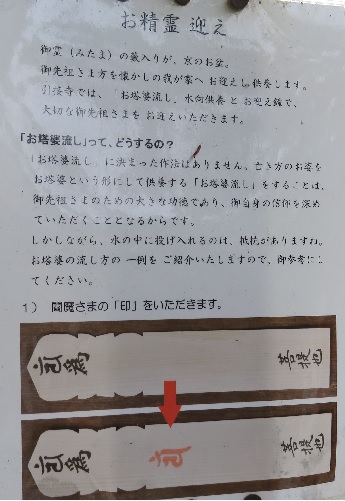 お精霊迎え
御霊（みたま）の藪入りが、京のお盆。
御先祖さま方を懐かしの我が家へお迎えし供養します。
引接寺では、「お塔婆流し」水向供養とお迎え鐘で、
大切な御先祖さまをお迎えいただきます。
「お塔婆流し」って、どうするの？
「お塔婆流し」に決まった作法はありません。亡き方のお姿を
お塔婆という形にして供養する「お塔婆流し」をすることは、
御先祖さまのための大きな功徳であり、御自身の信仰を深め
ていただくこととなるからです。
しかしながら、水の中に投げ入れるのは、抵抗がありますね。
お塔婆の流し方の一例をご紹介いたしますので、御参考にし
てください。
1） 閻魔さまの「印」をいただきます。
為
菩提也
為
菩提也